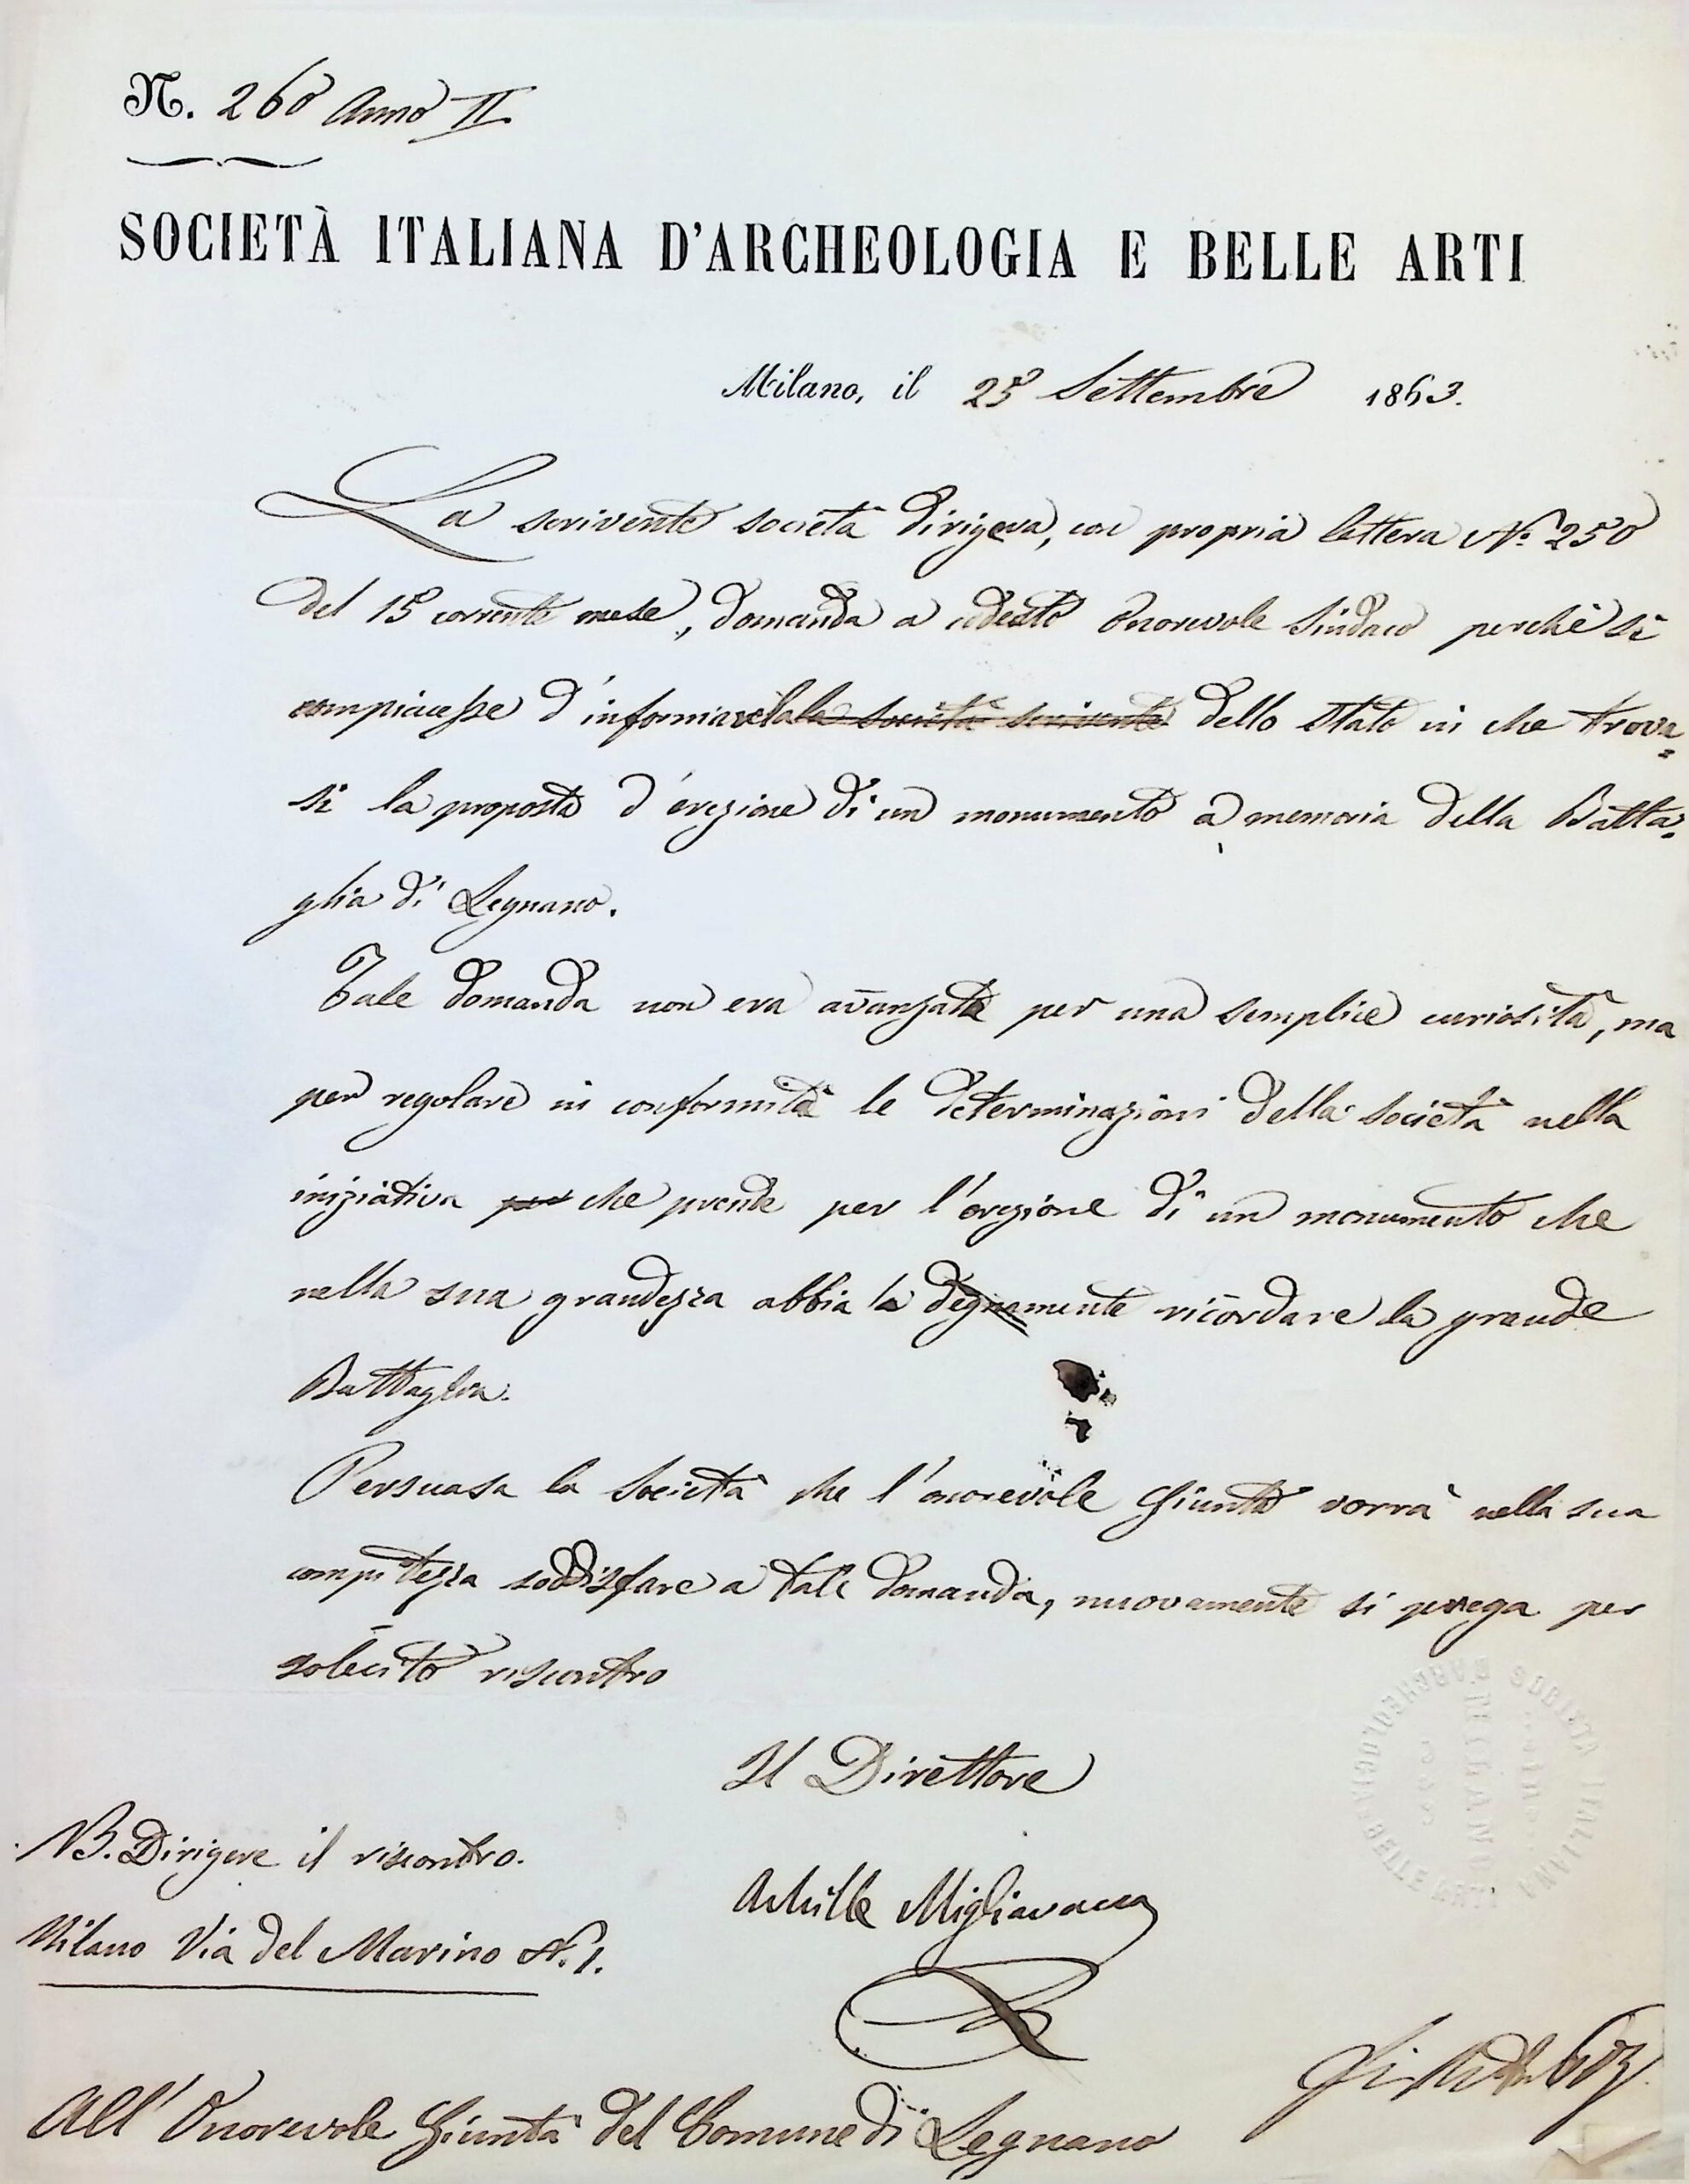 N. 260 Anno II
SOCIETÀ ITALIANA D'ARCHEOLOGIA E BELLE ARTI
Milano, il 25 Settembre 1863.
La scrivente società dirigeva, con propria lettera N.º 250
del 15 corrente mese, domanda a codesto Onorevole Sindaco perchè si
compiacesse d'informarla la società scrivente dello stato in che trova=
si la proposta d'erezione di un monumento a memoria della Batta=
glia di Legnano.
Tale domanda non era avanzata per una semplice curiosità, ma
per regolare in conformità le determinazioni della società nella
iniziativa per che prende per l'erezione di un monumento che
nella sua grandezza abbia a degnamente ricordare la grande
Battaglia.
Persuasa la Società che l'onorevole Giunta vorrà nella sua
compitezza soddisfare a tale domanda, nuovamente si prega per
solecito riscontro
Il Direttore
NB. Dirigere il riscontro.
Achille Migliavacca
Milano Via del Marino N. 1.
SOCIETA ITALIANA D'ARCHEOLOGIA E BELLE ARTI
MILANO
All'Onorevole Giunta del Comune di Legnano